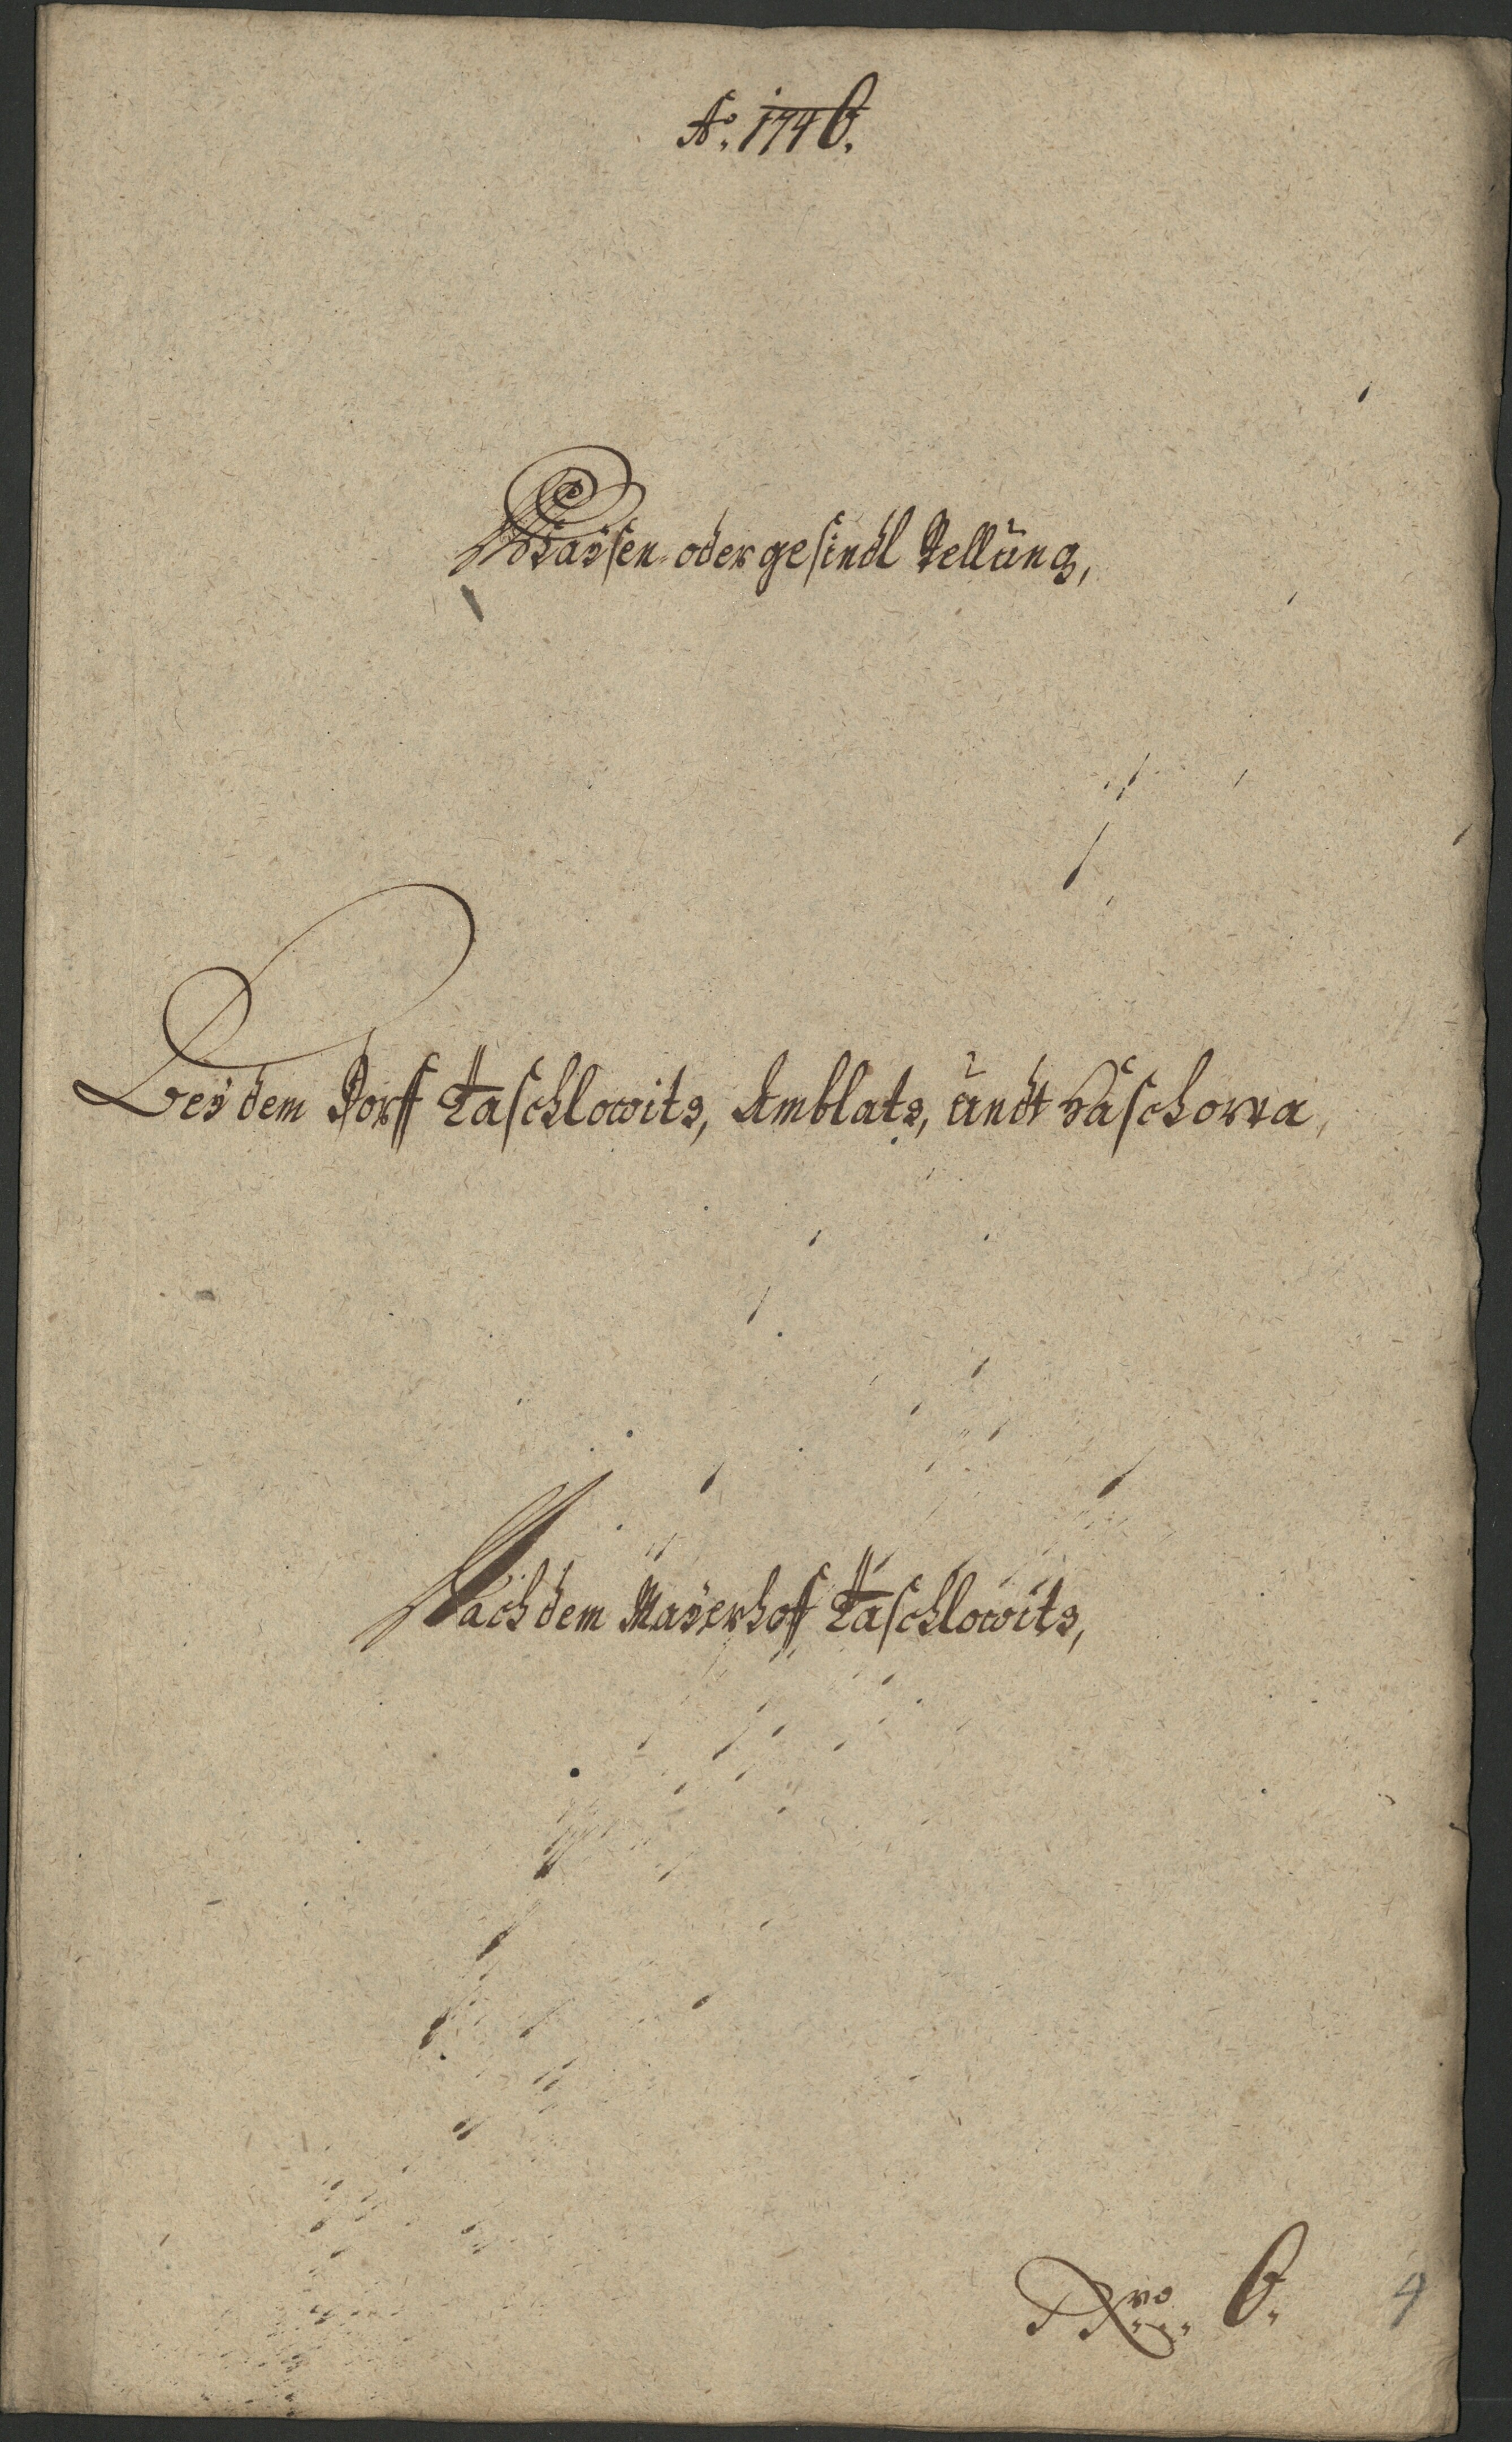 Ao. 1746.
Waisen oder gesindl stellung,
Bey dem Dorff Taschlowitz, Amblatz, undt Zaschowa,
Nach dem Mayerhoff Taschlowitz,
Nro. 6. 4